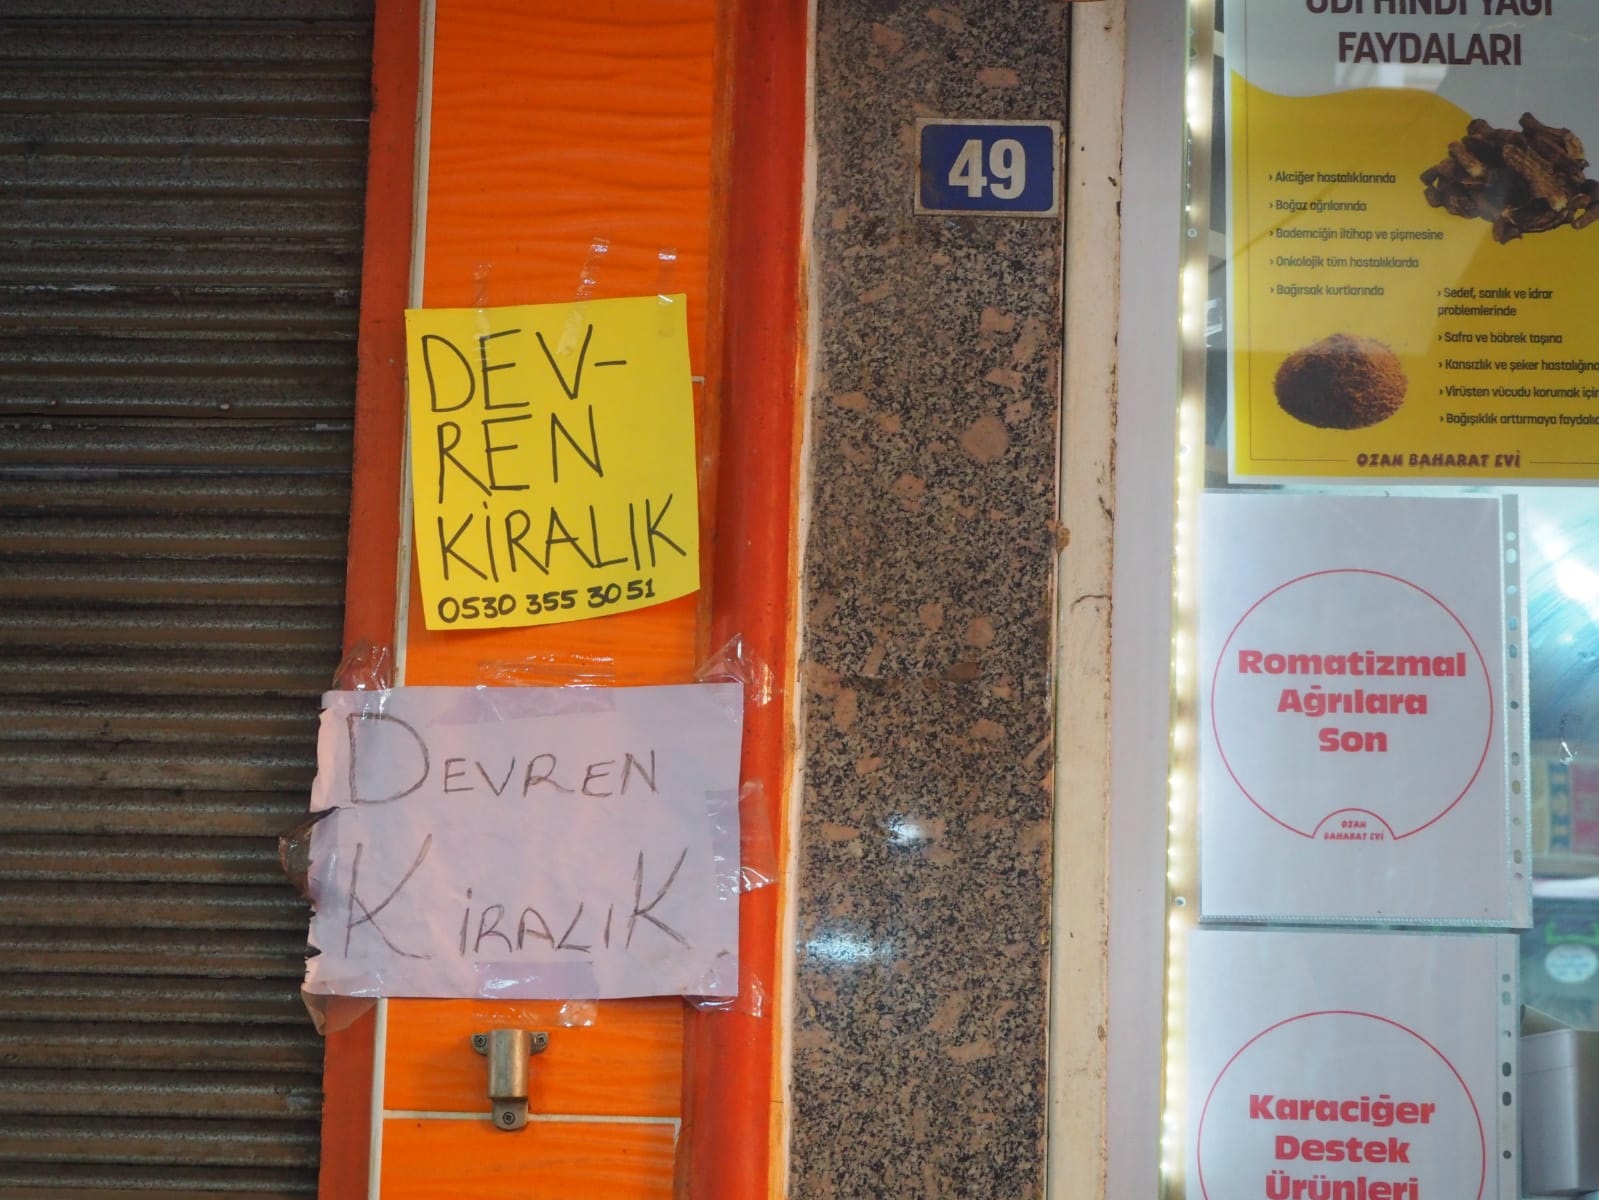 DEV-
REN
KİRALIK
0530 355 30 51
DEVREN
KİRALIK
49
UDİ HİNDİ YAĞI
FAYDALARI
› Akciğer hastalıklarında
› Boğaz ağrılarında
› Bademciğin iltihap ve şişmesine
› Onkolojik tüm hastalıklarda
› Bağırsak kurtlarında
› Sedef, sarılık ve idrar
problemlerinde
› Safra ve böbrek taşına
› Kansızlık ve şeker hastalığınd
› Virüsten vücudu korumak için
› Bağışıklık arttırmaya faydalıd
OZAN BAHARAT EVİ
Romatizmal
Ağrılara
Son
OZAN
BAHARAT EVİ
Karaciğer
Destek
Ürünleri